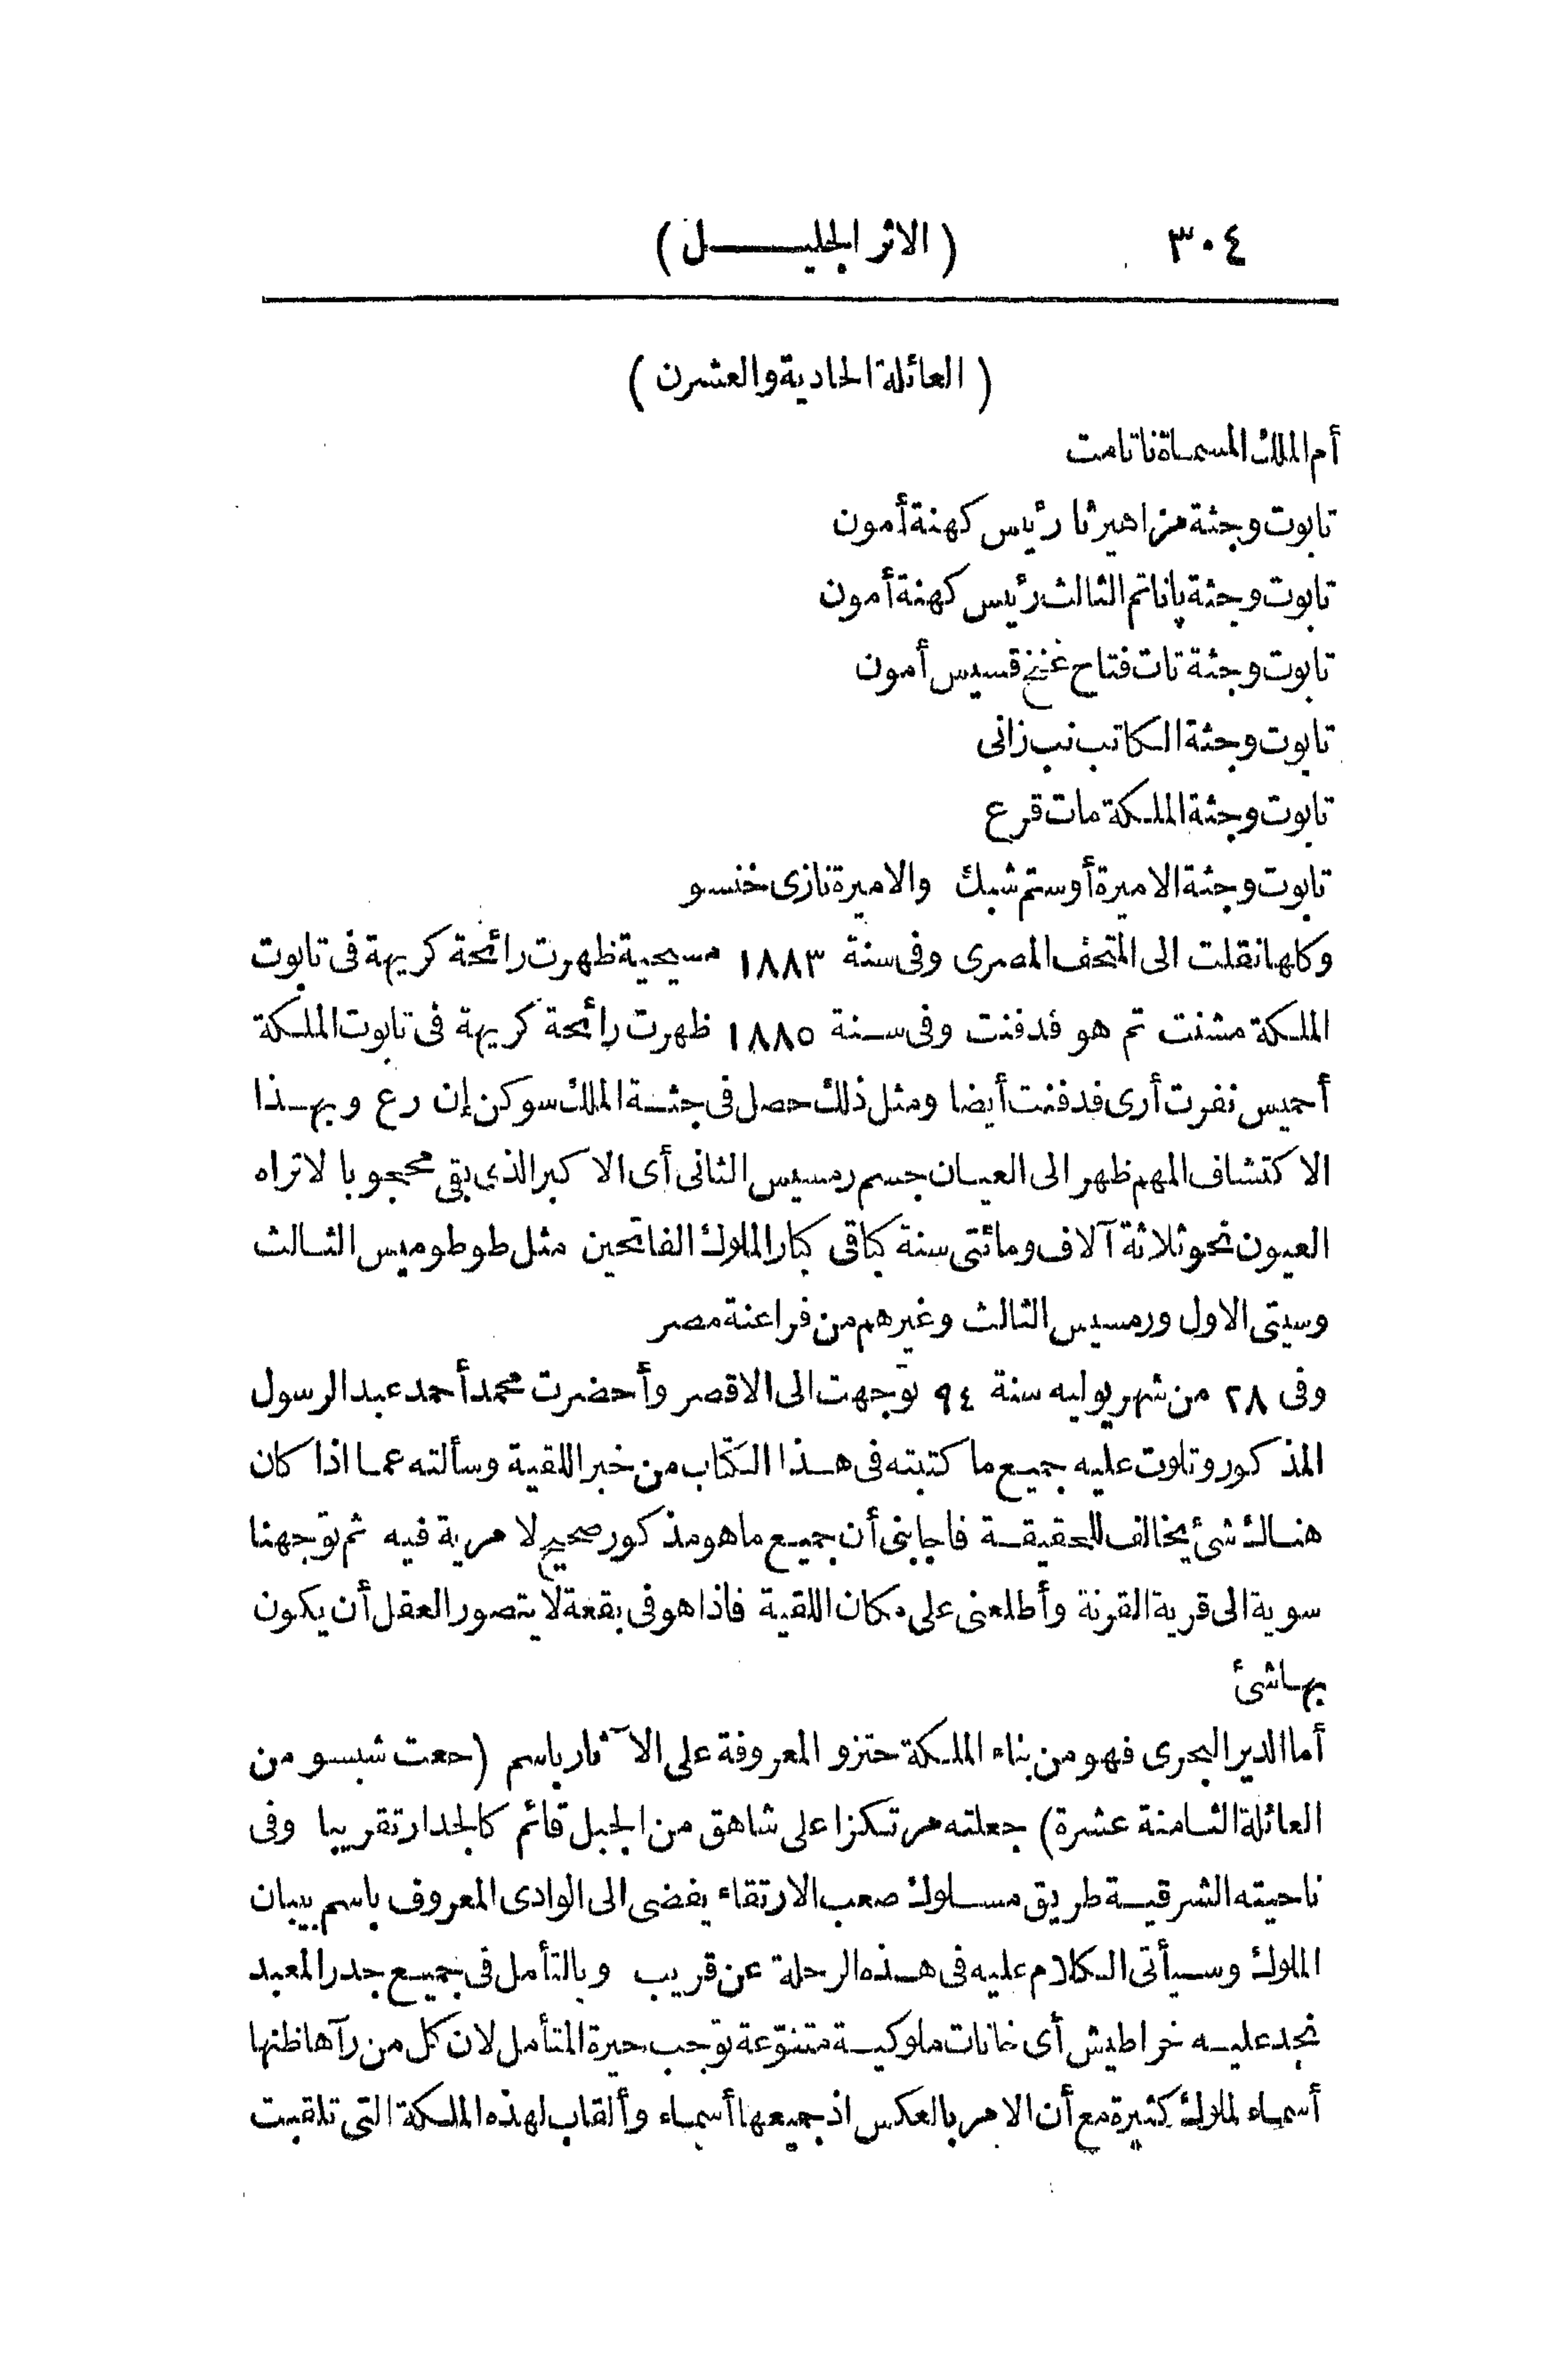 ٣٠٤ ( الاثر الجليـــــل )
( العائلة الحادية والعشرن )
أم الملك المسماة ناتامت
تابوت وجثة مزاهيرثا رئيس كهنة أمون
تابوت وجثة پاناتم الثالث رئيس كهنة أمون
تابوت وجثة تات فتاح غنخ قسيس أمون
تابوت وجثة الكاتب نب زانى
تابوت وجثة الملكة مات قرع
تابوت وجثة الاميرة أوستم شبك والاميرة نازى خنسو
وكلها نقلت الى المتحف المصرى وفى سنة ١٨٨٣ مسيحية ظهرت رائحة كريهة فى تابوت
الملكة مشنت تم هو فدفنت وفى سنة ١٨٨٥ ظهرت رائحة كريهة فى تابوت الملكة
أحميس نفرت أرى فدفنت أيضا ومثل ذلك حصل فى جثة الملك سوكن إن رع وبهذا
الاكتشاف المهم ظهر الى العيان جسم رمسيس الثانى أى الاكبر الذى بقى محجوبا لاتراه
العيون نحو ثلاثة آلاف ومائتى سنة كباقى كبار الملوك الفاتحين مثل طوطوميس الثالث
وسيتى الاول ورمسيس الثالث وغيرهم من فراعنة مصر
وفى ٢٨ من شهر يوليه سنة ٩٤ توجهت الى الاقصر وأحضرت محمد أحمد عبد الرسول
المذكور وتلوت عليه جميع ما كتبته فى هذا الكتاب من خبر اللقية وسألته عما اذا كان
هناك شئ يخالف للحقيقة فاجابنى أن جميع ماهو مذكور صحيح لا مرية فيه ثم توجهنا
سوية الى قرية القرنة وأطلعنى على مكان اللقية فاذا هو فى بقعة لا يتصور العقل أن يكون
بها شئ
أما الدير البحرى فهو من بناء الملكة حتزو المعروفة على الآثار باسم (حعت شبسو من
العائلة الثامنة عشرة) جعلته مرتكزا على شاهق من الجبل قائم كالجدار تقريبا وفى
ناحيته الشرقية طريق مسلوك صعب الارتقاء يفضى الى الوادى المعروف باسم بيبان
الملوك وسيأتى الكلام عليه فى هذه الرحلة عن قريب وبالتأمل فى جميع جدر المعبد
نجد عليه خراطيش أى خانات ملوكية متنوّعة توجب حيرة المتأمل لان كل من رآها ظنها
أسماء لملوك كثيرة مع أن الامر بالعكس اذ جميعها أسماء وألقاب لهذه الملكة التى تلقبت